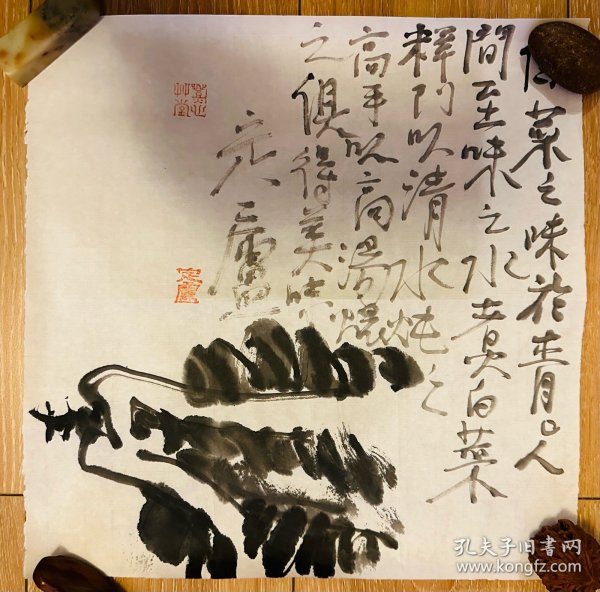 菜之味於青。人
間至味之水煮白菜
釋门以清水炖之
高手以高湯煨
之俱得美味
定廬
定廬
孔夫子旧书网
www.kongfz.com